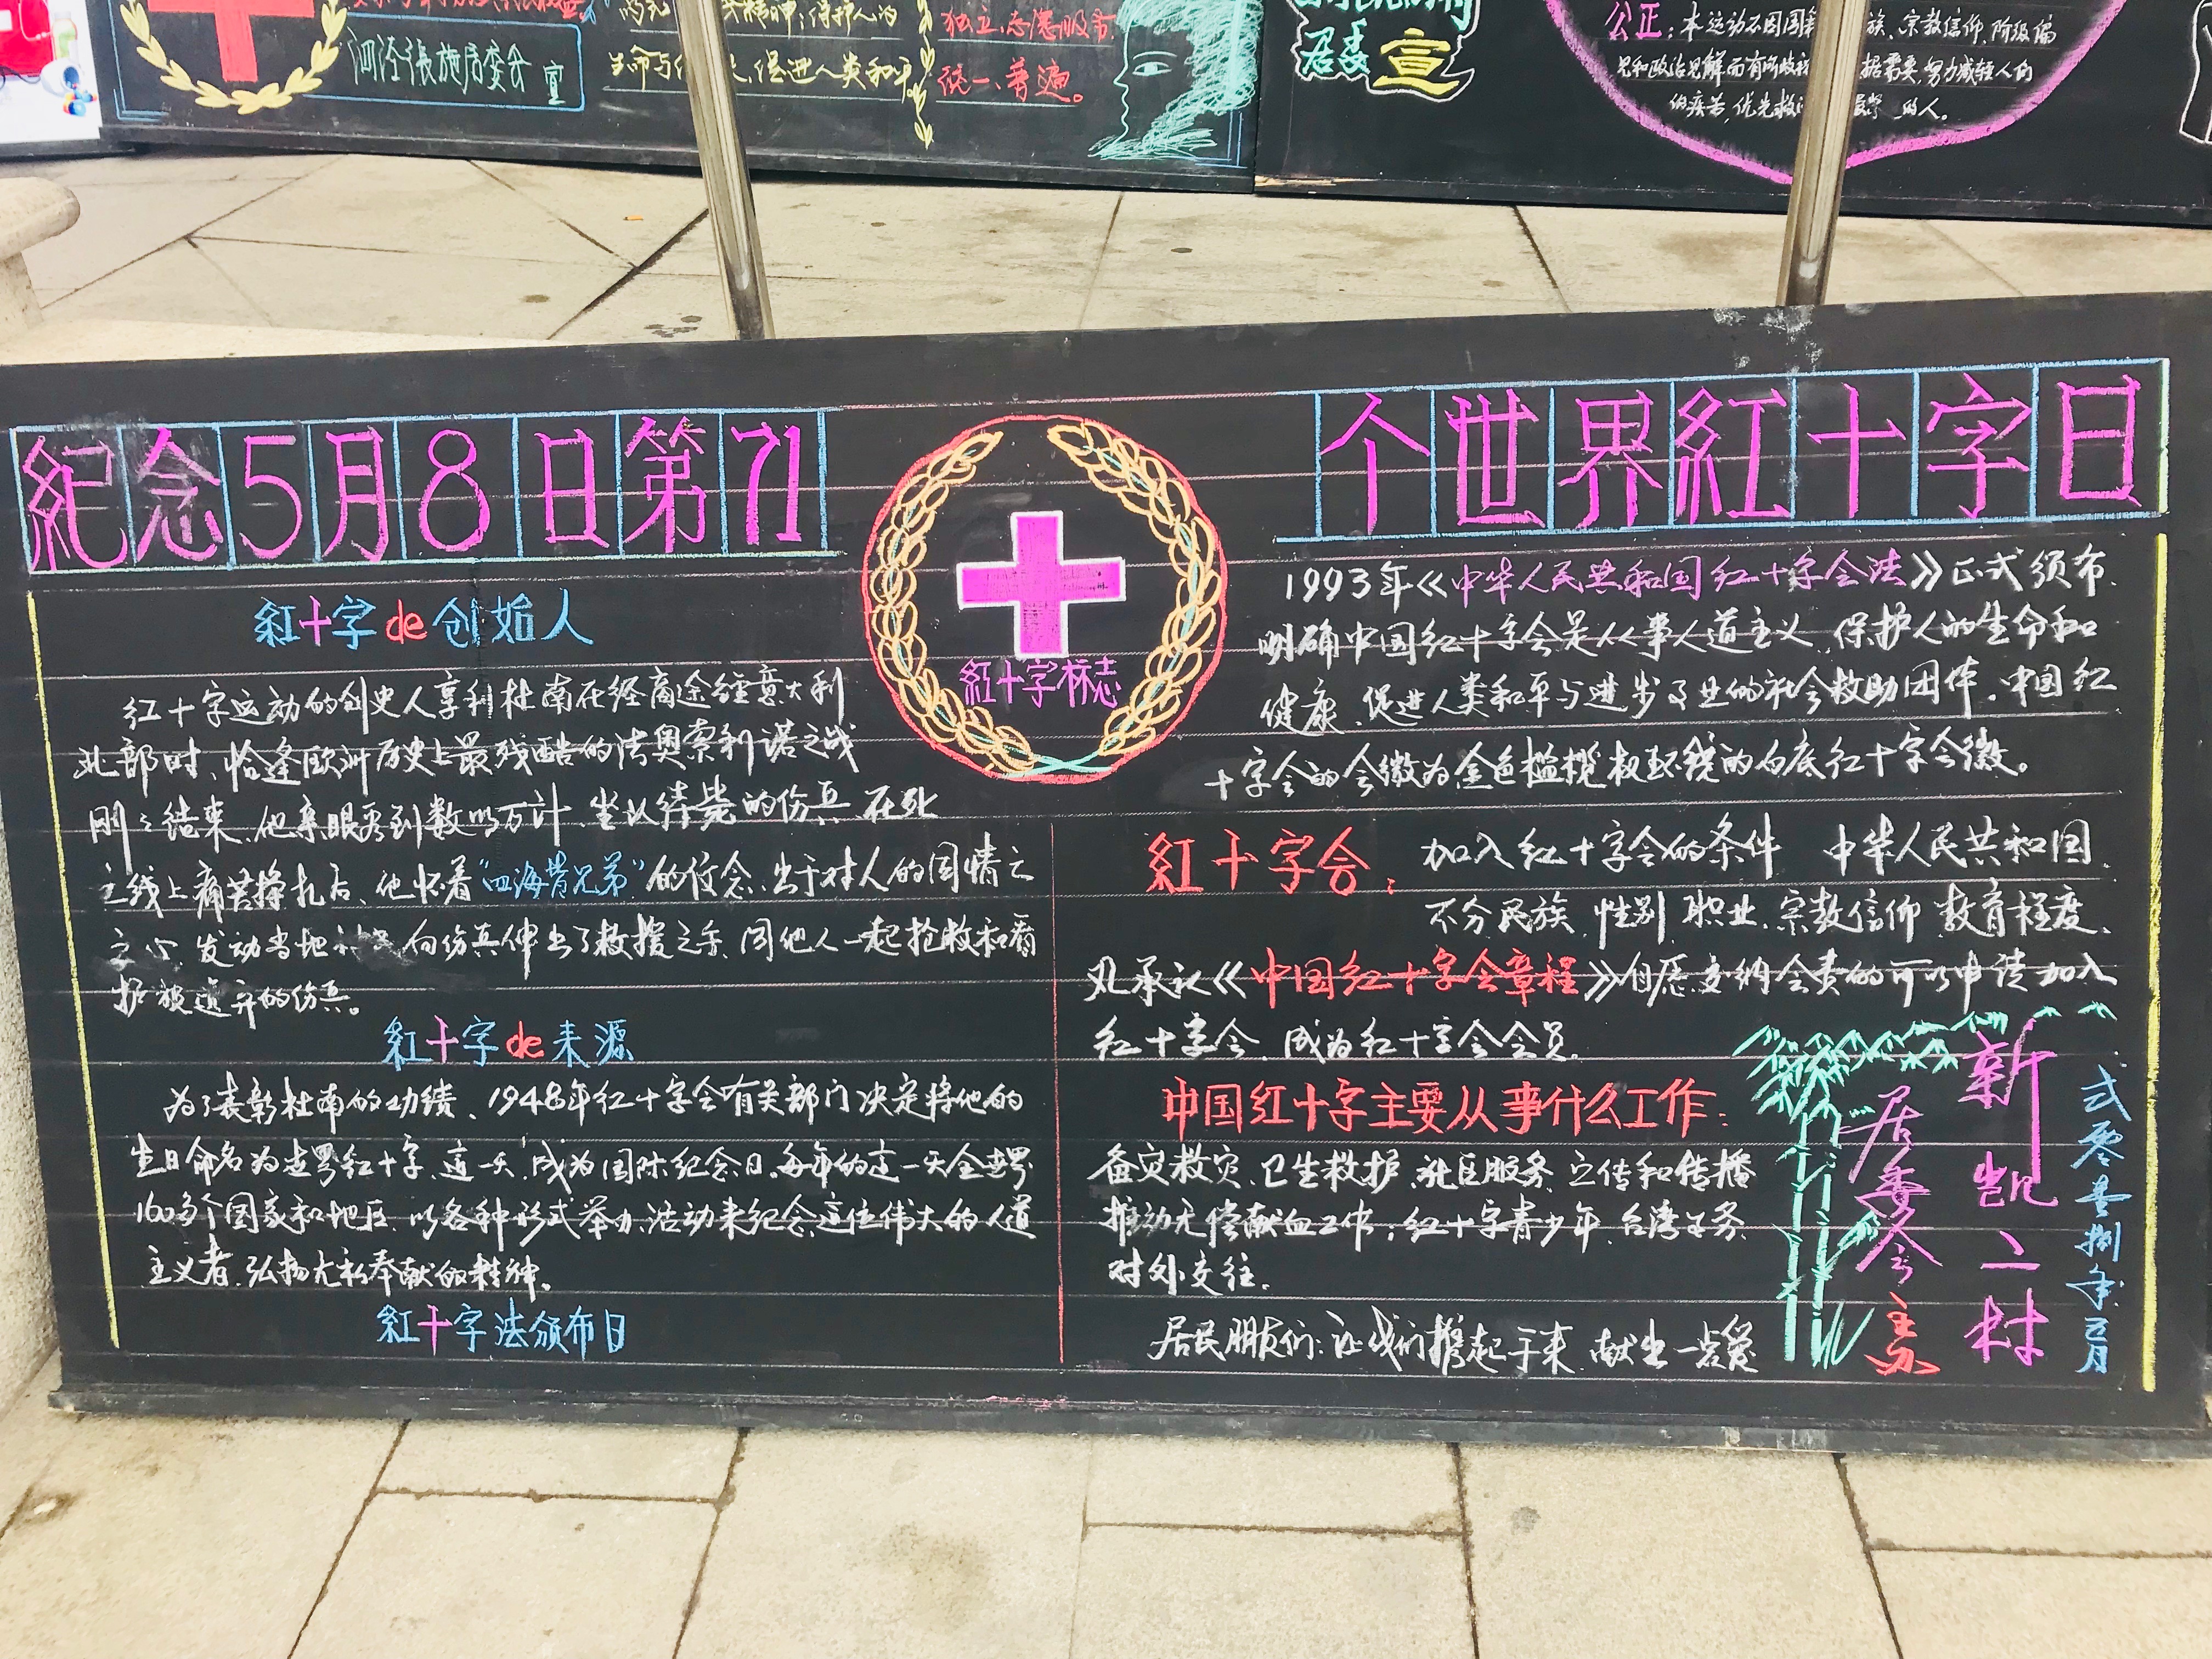 泗泾张施居委会 宣
独立、志愿服务、
统一、普遍。
居委 宣
公正：本运动不因国籍
族、宗教信仰、阶级偏
见和政治见解而有所歧视
据需要，努力减轻人们
的疾苦，优先救
的人。
紀念5月8日第71
个世界紅十字日
紅十字标志
紅十字de创始人
红十字运动的创史人享利杜南在经商途经意大利
北部时、恰逢欧洲历史上最残酷的法奥索利诺之战
刚刚结束、他亲眼看到数以万计、坐以待毙的伤兵、在死
亡线上痛苦挣扎后、他怀着“四海皆兄弟”的信念、出于对人的同情之
心、发动当地
向伤兵伸出了救援之手、同他人一起抢救和看
护被遗弃的伤兵。
紅十字de来源
为了表彰杜南的功绩、1948年红十字会有关部门决定将他的
生日命名为世界红十字、这一天、成为国际纪念日。每年的这一天全世界
160多个国家和地区、以各种形式举办活动来纪念这位伟大的人道
主义者、弘扬无私奉献的精神。
紅十字法颁布日
1993年《中华人民共和国红十字会法》正式颁布、
明确中国红十字会是从事人道主义、保护人的生命和
健康、促进人类和平与进步事业的社会救助团体。中国红
十字会的会徽为金色橄榄枝环绕的白底红十字会徽。
紅十字会：加入红十字会的条件 中华人民共和国
不分民族、性别、职业、宗教信仰、教育程度、
凡承认《中国红十字会章程》自愿交纳会费的可以申请加入
红十字会、成为红十字会会员。
中国红十字主要从事什么工作：
备灾救灾、卫生救护、社区服务、宣传和传播
推动无偿献血工作，红十字青少年、台湾事务、
对外交往.
居民朋友们：让我们携起手来、献出一点爱
新凯二村
居委会 主办
弍零壹捌年五月